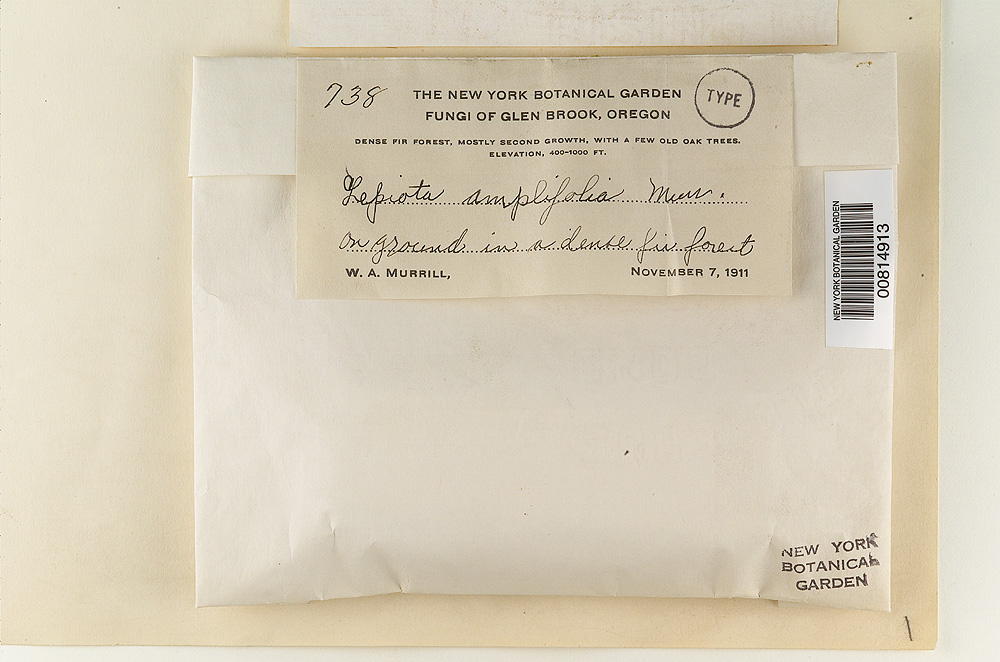 738
THE NEW YORK BOTANICAL GARDEN
TYPE
FUNGI OF GLEN BROOK, OREGON
DENSE FIR FOREST, MOSTLY SECOND GROWTH, WITH A FEW OLD OAK TREES.
ELEVATION, 400-1000 FT.
Lepiota amplifolia Murr.
on ground in a dense fir forest
W. A. MURRILL, NOVEMBER 7, 1911
NEW YORK BOTANICAL GARDEN
00814913
NEW YORK
BOTANICAL
GARDEN
1